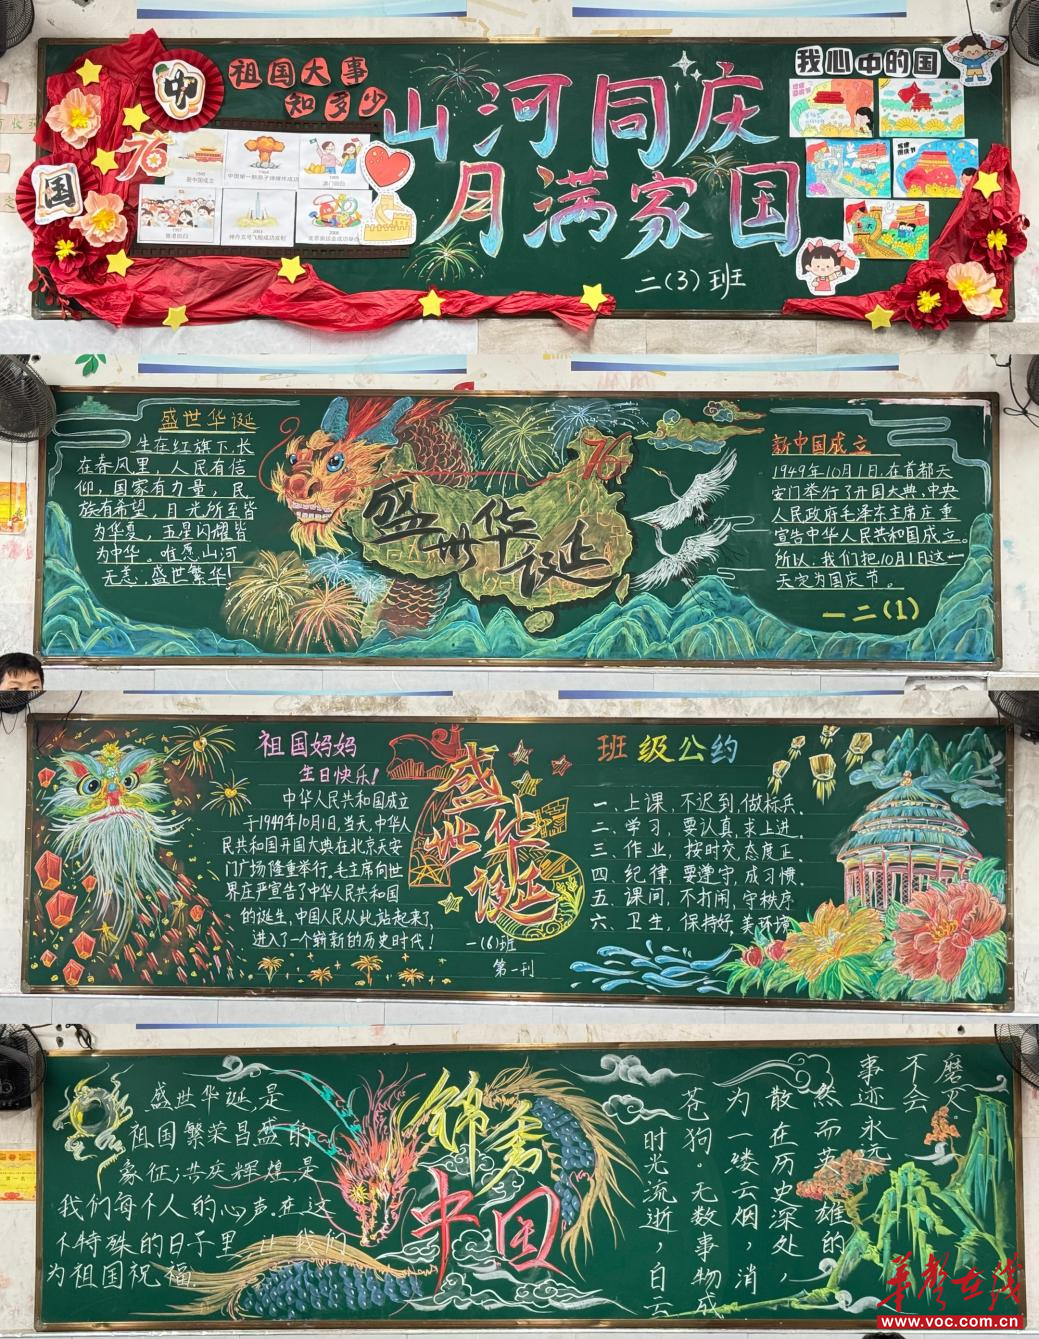 中
国
祖国大事
知多少
76
1949
新中国成立
1964
中国第一颗原子弹爆炸成功
1999
澳门回归
1997
香港回归
2003
神舟五号飞船成功发射
2008
山河同庆
月满家国
二(3)班
我心中的国
盛世华诞
生在红旗下,长
在春风里,人民有信
仰,国家有力量,民
族有希望,目光所至皆
为华夏,五星闪耀皆
为中华。唯愿山河
无恙,盛世繁华!
盛世华诞
76
新中国成立
1949年10月1日,在首都天
安门举行了开国大典,中央
人民政府毛泽东主席庄重
宣告中华人民共和国成立。
所以,我们把10月1日这一
天定为国庆节。
一二(1)
祖国妈妈
生日快乐!
中华人民共和国成立
于1949年10月1日,当天,中华人
民共和国开国大典在北京天安
门广场隆重举行,毛主席向世
界庄严宣告了中华人民共和国
的诞生,中国人民从此站起来了,
进入了一个崭新的历史时代!
一(6)班
第一刊
盛世华诞
班级公约
一、上课,不迟到,做标兵。
二、学习,要认真,求上进。
三、作业,按时交,态度正。
四、纪律,要遵守,成习惯。
五、课间,不打闹,守秩序
六、卫生,保持好,美环境
盛世华诞,是
祖国繁荣昌盛的
象征;共庆辉煌,是
我们每个人的心声。在这
个特殊的日子里,让我们
为祖国祝福.
锦秀
中国
时光流逝,白云
苍狗。无数事物成
为一缕云烟,消
散在历史深处,
然而英雄的
事迹永远
不会
磨灭。
华声在线
www.voc.com.cn